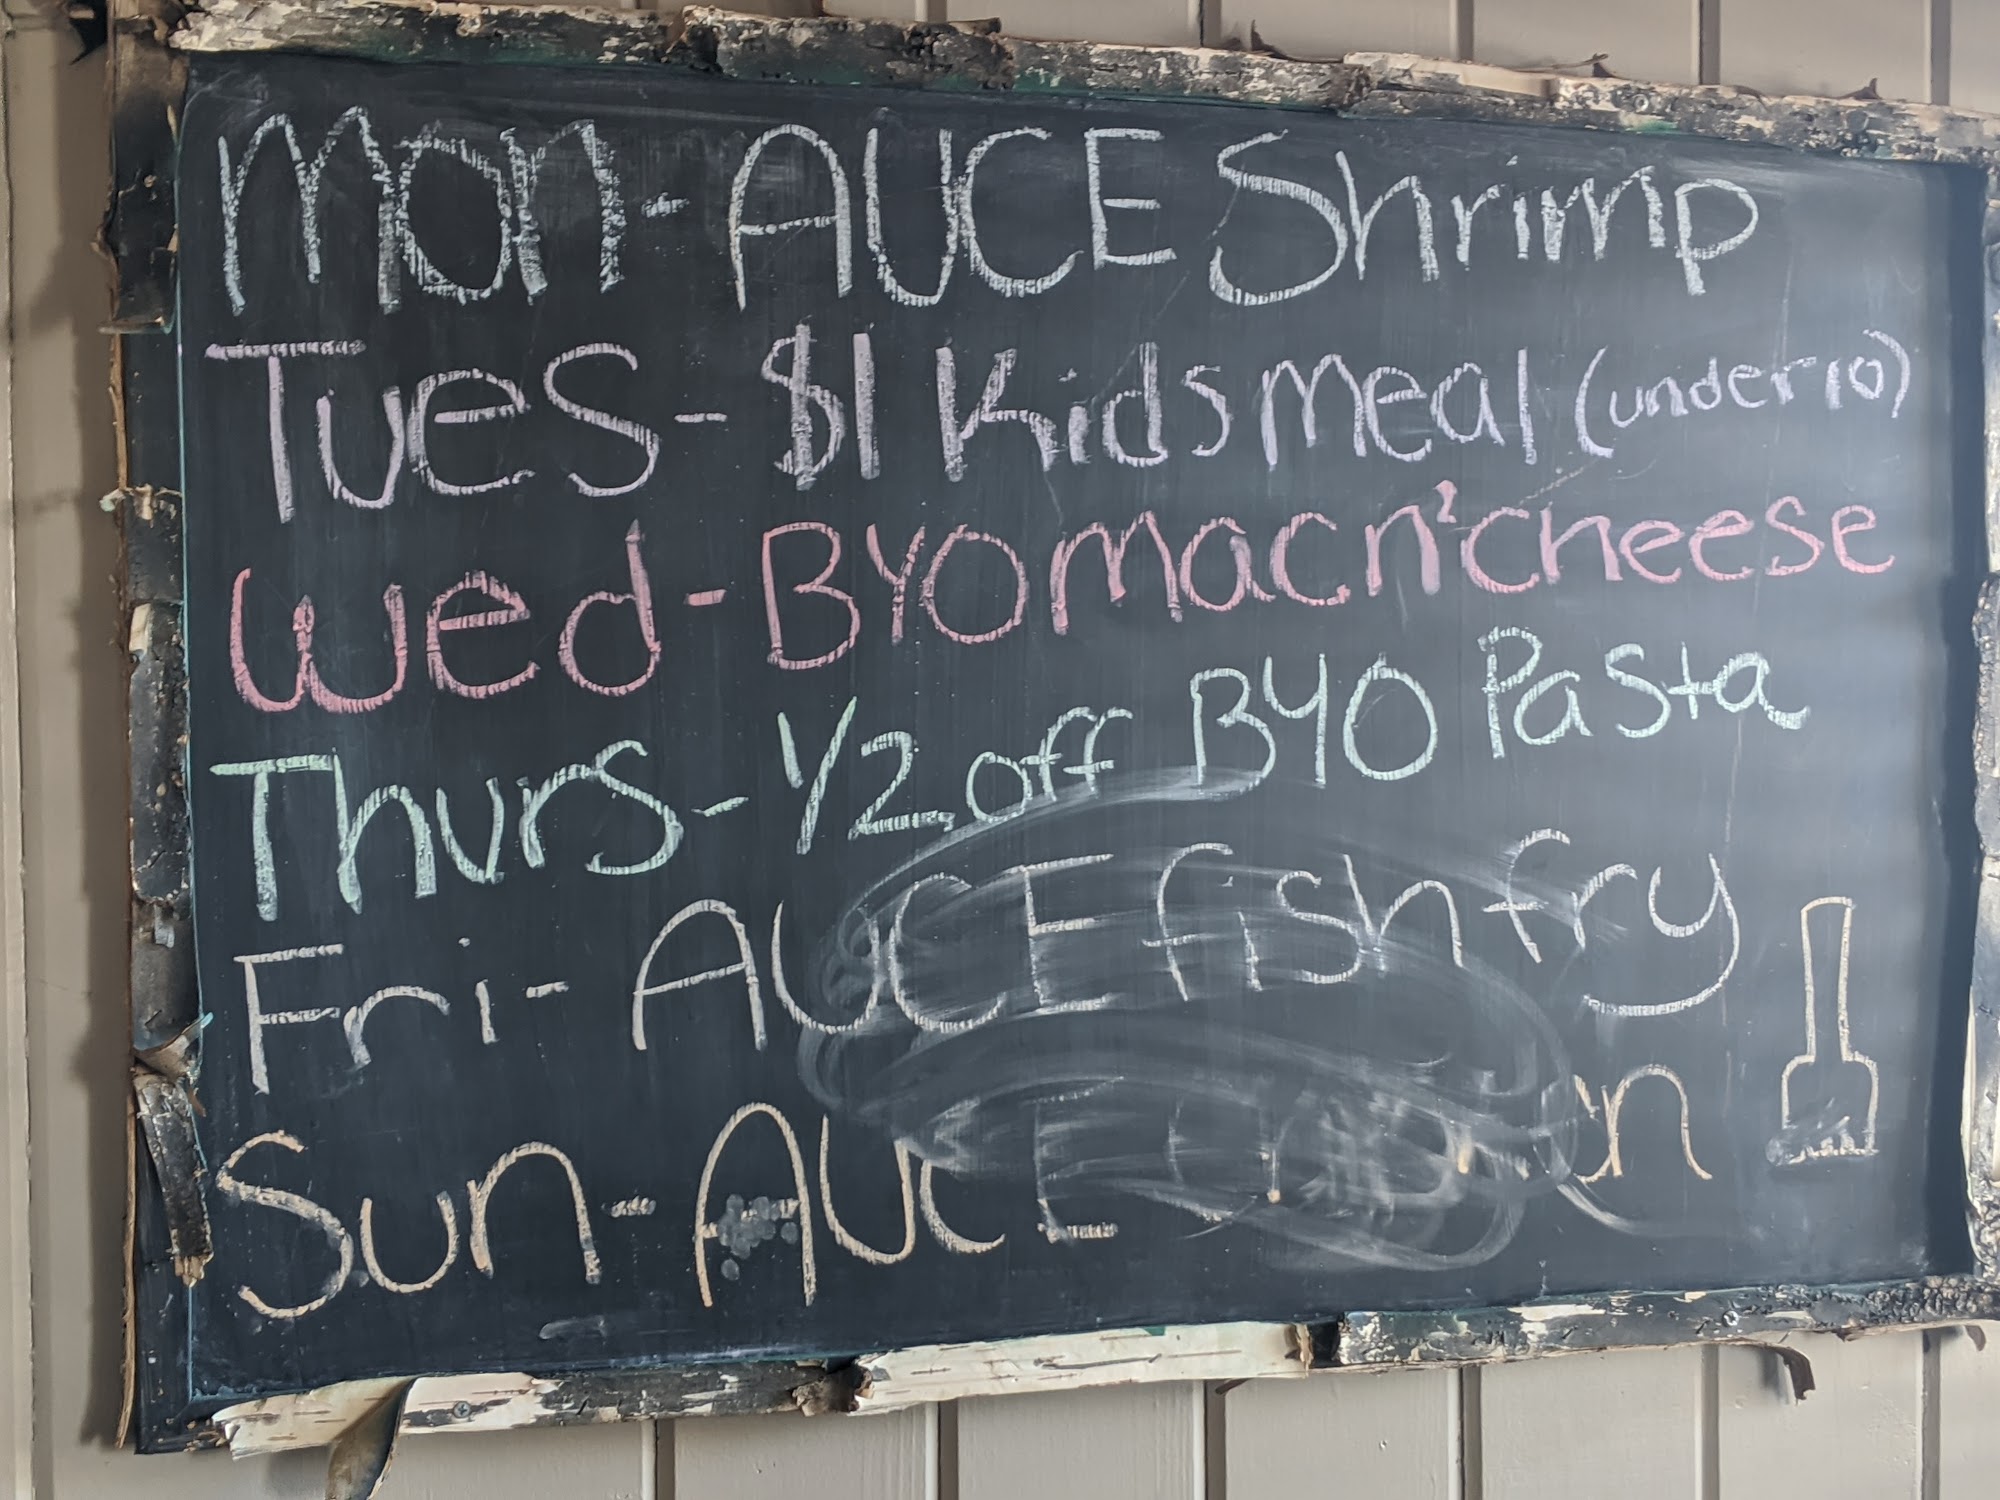 Mon - AUCE Shrimp
Tues - $1 Kids meal (under 10)
Wed - BYO mac n' cheese
Thurs - 1/2 off BYO Pasta
Fri - AUCE fish fry
Sun - AUCE